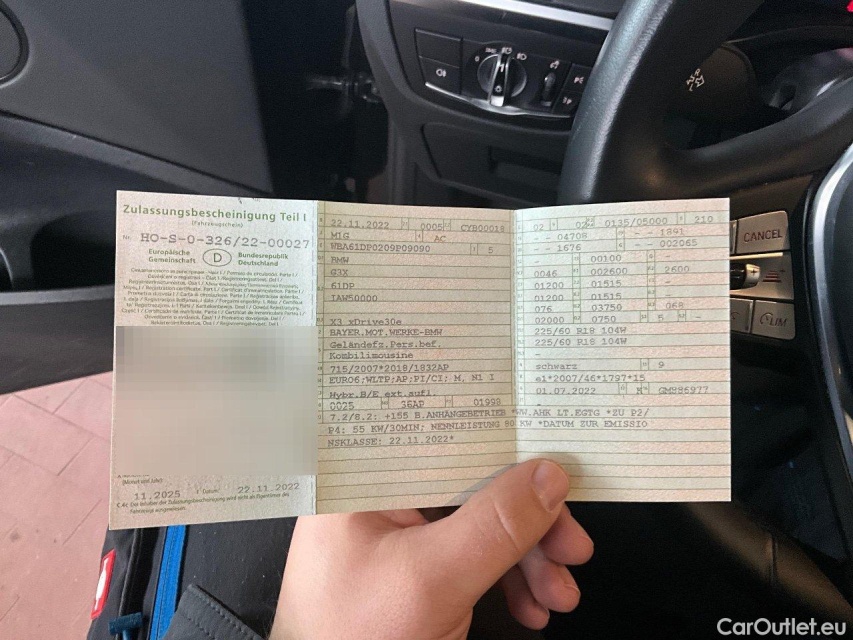 Zulassungsbescheinigung Teil I
(Fahrzeugschein)
Nr. HO-S-0-326/22-00027
Europäische
Gemeinschaft
D
Bundesrepublik
Deutschland
11.2025
Datum: 22.11.2022
C.4c: Der Inhaber der Zulassungsbescheinigung wird nicht als Eigentümer des
Fahrzeugs ausgewiesen.
22.11.2022 0005 CYB00018
M1G AC
WBA61DP0209P09090 5
BMW
G3X
61DP
IAW50000
X3 xDrive30e
BAYER.MOT.WERKE-BMW
Geländefz.Pers.bef.
Kombilimousine
715/2007*2018/1832AP
EURO6;WLTP;AP;PI/CI; M, N1 I
Hybr.B/E ext.aufl.
0025 36AP 01998
7.2/8.2: +155 B.ANHÄNGEBETRIEB *WW.AHK LT.EGTG *ZU P2/
P4: 55 KW/30MIN; NENNLEISTUNG 80 KW *DATUM ZUR EMISSIO
NSKLASSE: 22.11.2022*
02 02 0135/05000 210
- - 04708 - - 1891
- - 1676 - - 002065
00100 -
0046 002600 2600
01200 01515 -
01200 01515 -
076 03750 068
02000 0750 5 -
225/60 R18 104W
225/60 R18 104W
-
schwarz 9
e1*2007/46*1797*15
01.07.2022 K GM886977
-
CANCEL
LIM
CarOutlet.eu